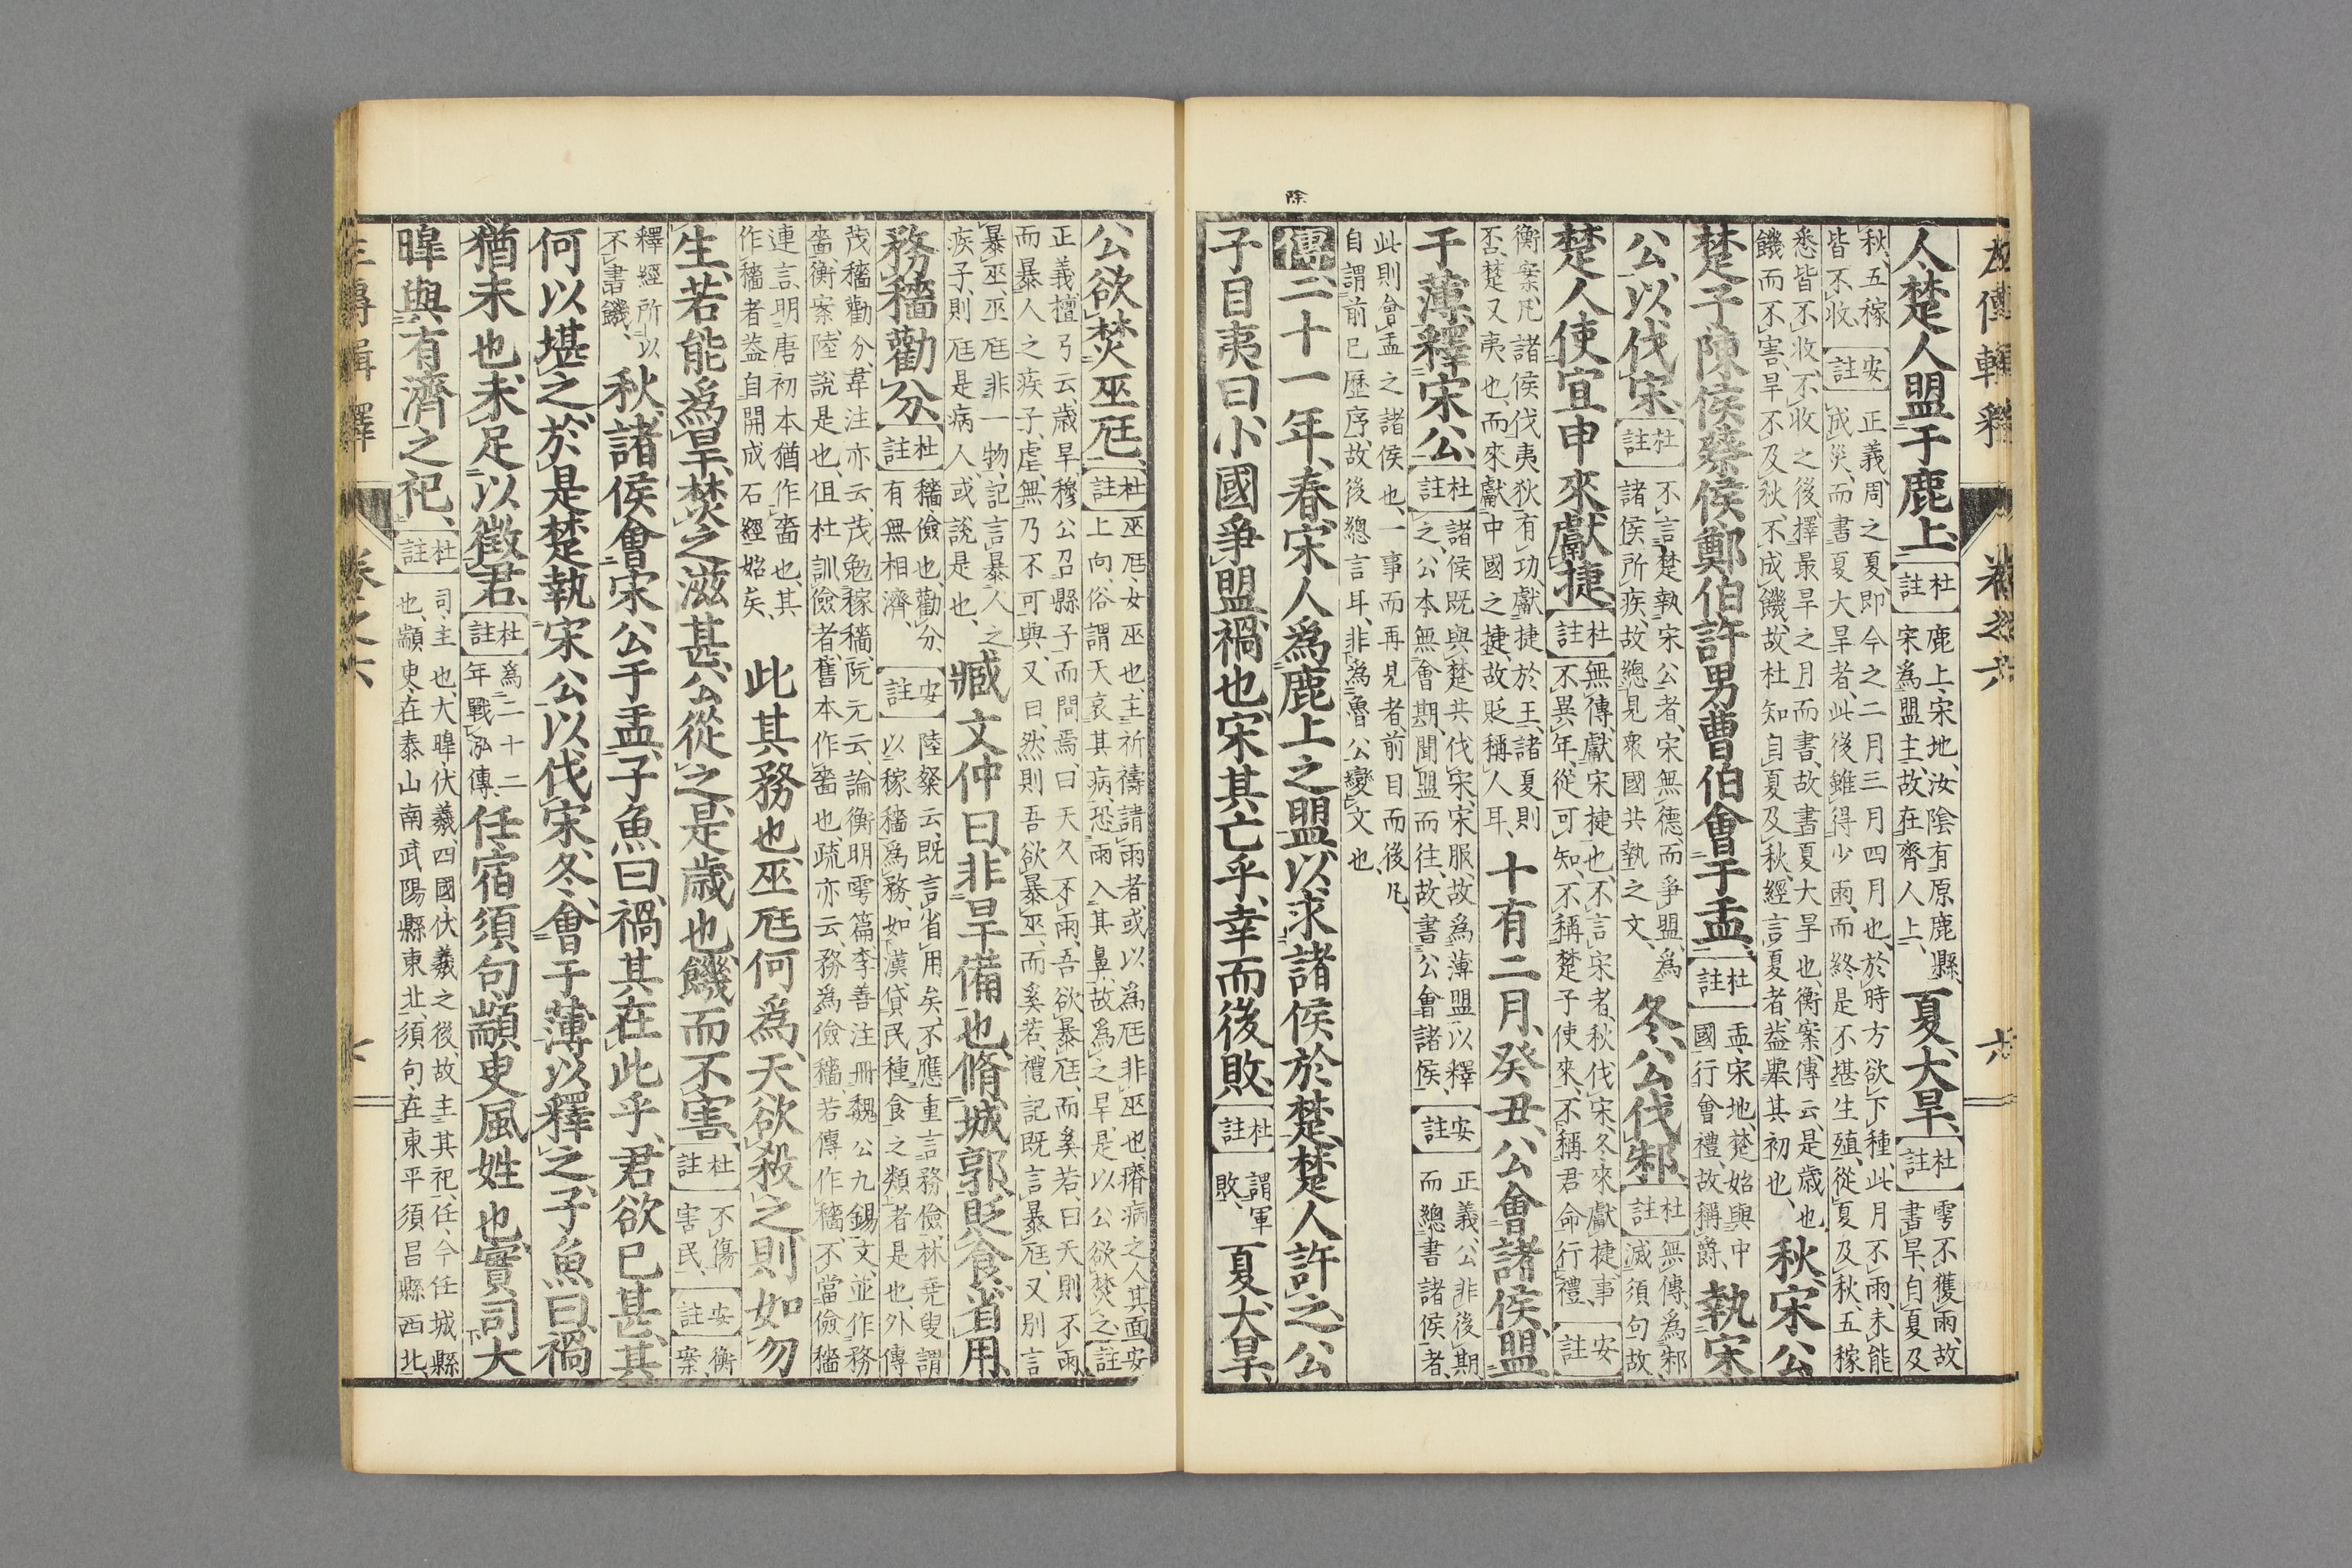 左傳輯釋 卷之六 六
人楚人盟于鹿上、【杜註】鹿上、宋地、汝陰有原鹿縣、宋爲盟主、故在齊人上、夏、大旱、【杜註】雩不獲雨、故書旱、自夏及
秋、五稼皆不收、【安註】正義、周之夏、即今之二月三月四月也、於時方欲下種、此月不雨、未能成災、而書夏大旱者、此後雖得少雨、而終是不堪生殖、從夏及秋、五稼
悉皆不收、不收之後、擇最旱之月而書、故書夏大旱也、衡案、傳云、是歲也、饑而不害、旱不及秋、不成饑、故杜知自夏及秋、經言夏者、益舉其初也、秋、宋公
楚子陳侯蔡侯鄭伯許男曹伯會于盂、【杜註】盂、宋地、楚始與中國行會禮、故稱爵、執宋
公以伐宋、【杜註】不言楚執宋公者、宋無德而爭盟、爲諸侯所疾、故總見衆國共執之文、冬、公伐邾、【杜註】無傳、爲邾滅須句故、
楚人使宜申來獻捷、【杜註】無傳、獻宋捷也、不言宋者、秋伐宋、冬來獻捷、事不異年、從可知、不稱楚子使來、不稱君命行禮、【安註】
衡案、凡諸侯伐夷狄有功、獻捷於王、諸夏則否、楚又夷也、而來獻中國之捷、故貶稱人耳、十有二月、癸丑、公會諸侯盟
于薄、釋宋公、【杜註】諸侯既與楚共伐宋、宋服、故爲薄盟以釋之、公本無會期、聞盟而往、故書公會諸侯、【安註】正義、公非後期而總書諸侯者、
此則會盂之諸侯也、一事而再見者、前目而後凡、自謂前已歷序、故後總言耳、非爲魯公變文也、
傳二十一年、春、宋人爲鹿上之盟、以求諸侯於楚、楚人許之、公
子目夷曰、小國爭盟、禍也、宋其亡乎、幸而後敗、【杜註】謂軍敗、夏、大旱、
除
公欲焚巫尪、【杜註】巫尪、女巫也、主祈禱請雨者、或以爲尪非巫也、瘠病之人、其面上向、俗謂天哀其病、恐雨入其鼻、故爲之旱、是以公欲焚之、【安註】
正義、檀弓云、歲旱、穆公召縣子而問焉、曰、天久不雨、吾欲暴尪、而奚若、曰、天則不雨、而暴人之疾子、虐、無乃不可與、又曰、然則吾欲暴巫、而奚若、禮記既言暴尪、又別言
暴巫、巫尪非一物、記言暴人之疾子、則尪是病人、或說是也、臧文仲曰、非旱備也、脩城郭、貶食、省用、
務穡勸分、【杜註】穡、儉也、勸分、有無相濟、【安註】陸粲云、既言省用矣、不應重言務儉、林堯叟謂以稼穡爲務、如漢貸民種食之類者是也、外傳
茂穡勸分、韋注亦云、茂勉稼穡、阮元云、論衡明雩篇、李善注冊魏公九錫文、並作務嗇、衡案、陸說是也、伹杜訓儉者、舊本作嗇也、疏亦云、務爲儉穡、若傳作穡、不當儉穡
連言、明唐初本猶作嗇也、其作穡者、益自開成石經始矣、此其務也、巫尪何爲、天欲殺之、則如勿
生、若能爲旱、焚之滋甚、公從之、是歲也、饑而不害、【杜註】不傷害民、【安註】衡案、
釋經所以不書饑、秋、諸侯會宋公于盂、子魚曰、禍其在此乎、君欲已甚、其
何以堪之、於是楚執宋公以伐宋、冬、會于薄以釋之、子魚曰、禍
猶未也、未足以徵君、【杜註】爲二十二年戰泓傳、任宿須句顓臾、風姓也、實司大
皥與有濟之祀、【杜註】司、主也、大皥、伏羲、四國、伏羲之後、故主其祀、任、今任城縣也、顓臾、在泰山南武陽縣東北、須句、在東平須昌縣西北、
左傳輯釋 卷之六